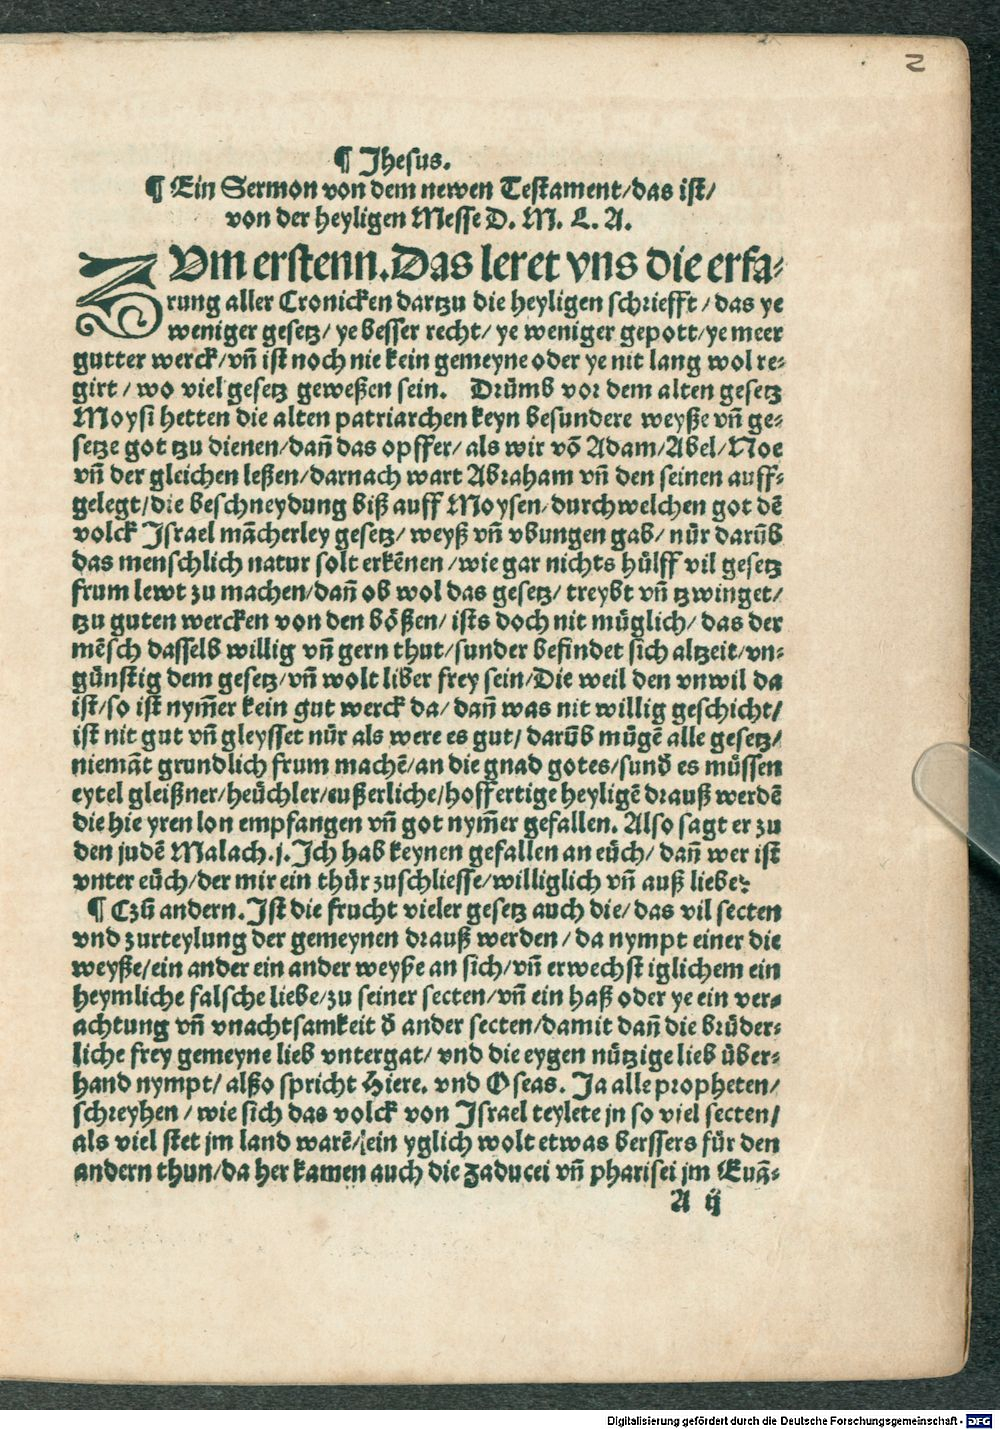 2
¶ Jhesus.
¶ Ein Sermon von dem newen Testament/das ist/
von der heyligen Messe D. M. L. A.
ZVm erstenn. Das leret vns die erfa⸗
rung aller Cronicken dartzu die heyligen schriefft/das ye
weniger gesetz/ye besser recht/ye weniger gepott/ye meer
gutter werck/vñ ist noch nie kein gemeyne oder ye nit lang wol re⸗
girt/wo viel gesetz geweßen sein. Drümb vor dem alten gesetz
Moysi hetten die alten patriarchen keyn besundere weyße vñ ge⸗
setze got tzu dienen/dañ das opffer/als wir võ Adam/Abel/Noe
vñ der gleichen leßen/darnach wart Abraham vñ den seinen auff⸗
gelegt/die beschneydung biß auff Moysen/durchwelchen got dē
volck Israel mācherley gesetz/weyß vñ vbungen gab/nür darūb
das menschlich natur solt erkēnen/wie gar nichts hülff vil gesetz
frum lewt zu machen/dañ ob wol das gesetz/treybt vñ tzwinget/
tzu guten wercken von den bößen/ists doch nit müglich/das der
mēsch dasselb willig vñ gern thut/sunder befindet sich altzeit/vn⸗
günstig dem gesetz/vñ wolt liber frey sein/Die weil den vnwil da
ist/so ist nym̄er kein gut werck da/dañ was nit willig geschicht/
ist nit gut vñ gleysset nür als were es gut/darūb mügē alle gesetz/
niemāt grundlich frum machē/an die gnad gotes/sunđ es müssen
eytel gleißner/heüchler/eußerliche/hoffertige heyligē drauß werdē
die hie yren lon empfangen vñ got nym̄er gefallen. Also sagt er zu
den judē Malach.j. Ich hab keynen gefallen an eüch/dañ wer ist
vnter eüch/der mir ein thür zuschliesse/williglich vñ auß liebe?
¶ Czū andern. Ist die frucht vieler gesetz auch die/das vil secten
vnd zurteylung der gemeynen drauß werden/da nympt einer die
weyße/ein ander ein ander weyße an sich/vñ erwechst iglichem ein
heymliche falsche liebe/zu seiner secten/vñ ein haß oder ye ein ver⸗
achtung vñ vnachtsamkeit đ ander secten/damit dañ die brüder⸗
liche frey gemeyne lieb vntergat/vnd die eygen nützige lieb über⸗
hand nympt/alßo spricht Hiere. vnd Oseas. Ja alle propheten/
schreyhen/wie sich das volck von Israel teylete jn so viel secten/
als viel stet jm land warē/ein yglich wolt etwas berssers für den
andern thun/da her kamen auch die zaducei vñ pharisei jm Euā⸗
A ij
Digitalisierung gefördert durch die Deutsche Forschungsgemeinschaft - DFG